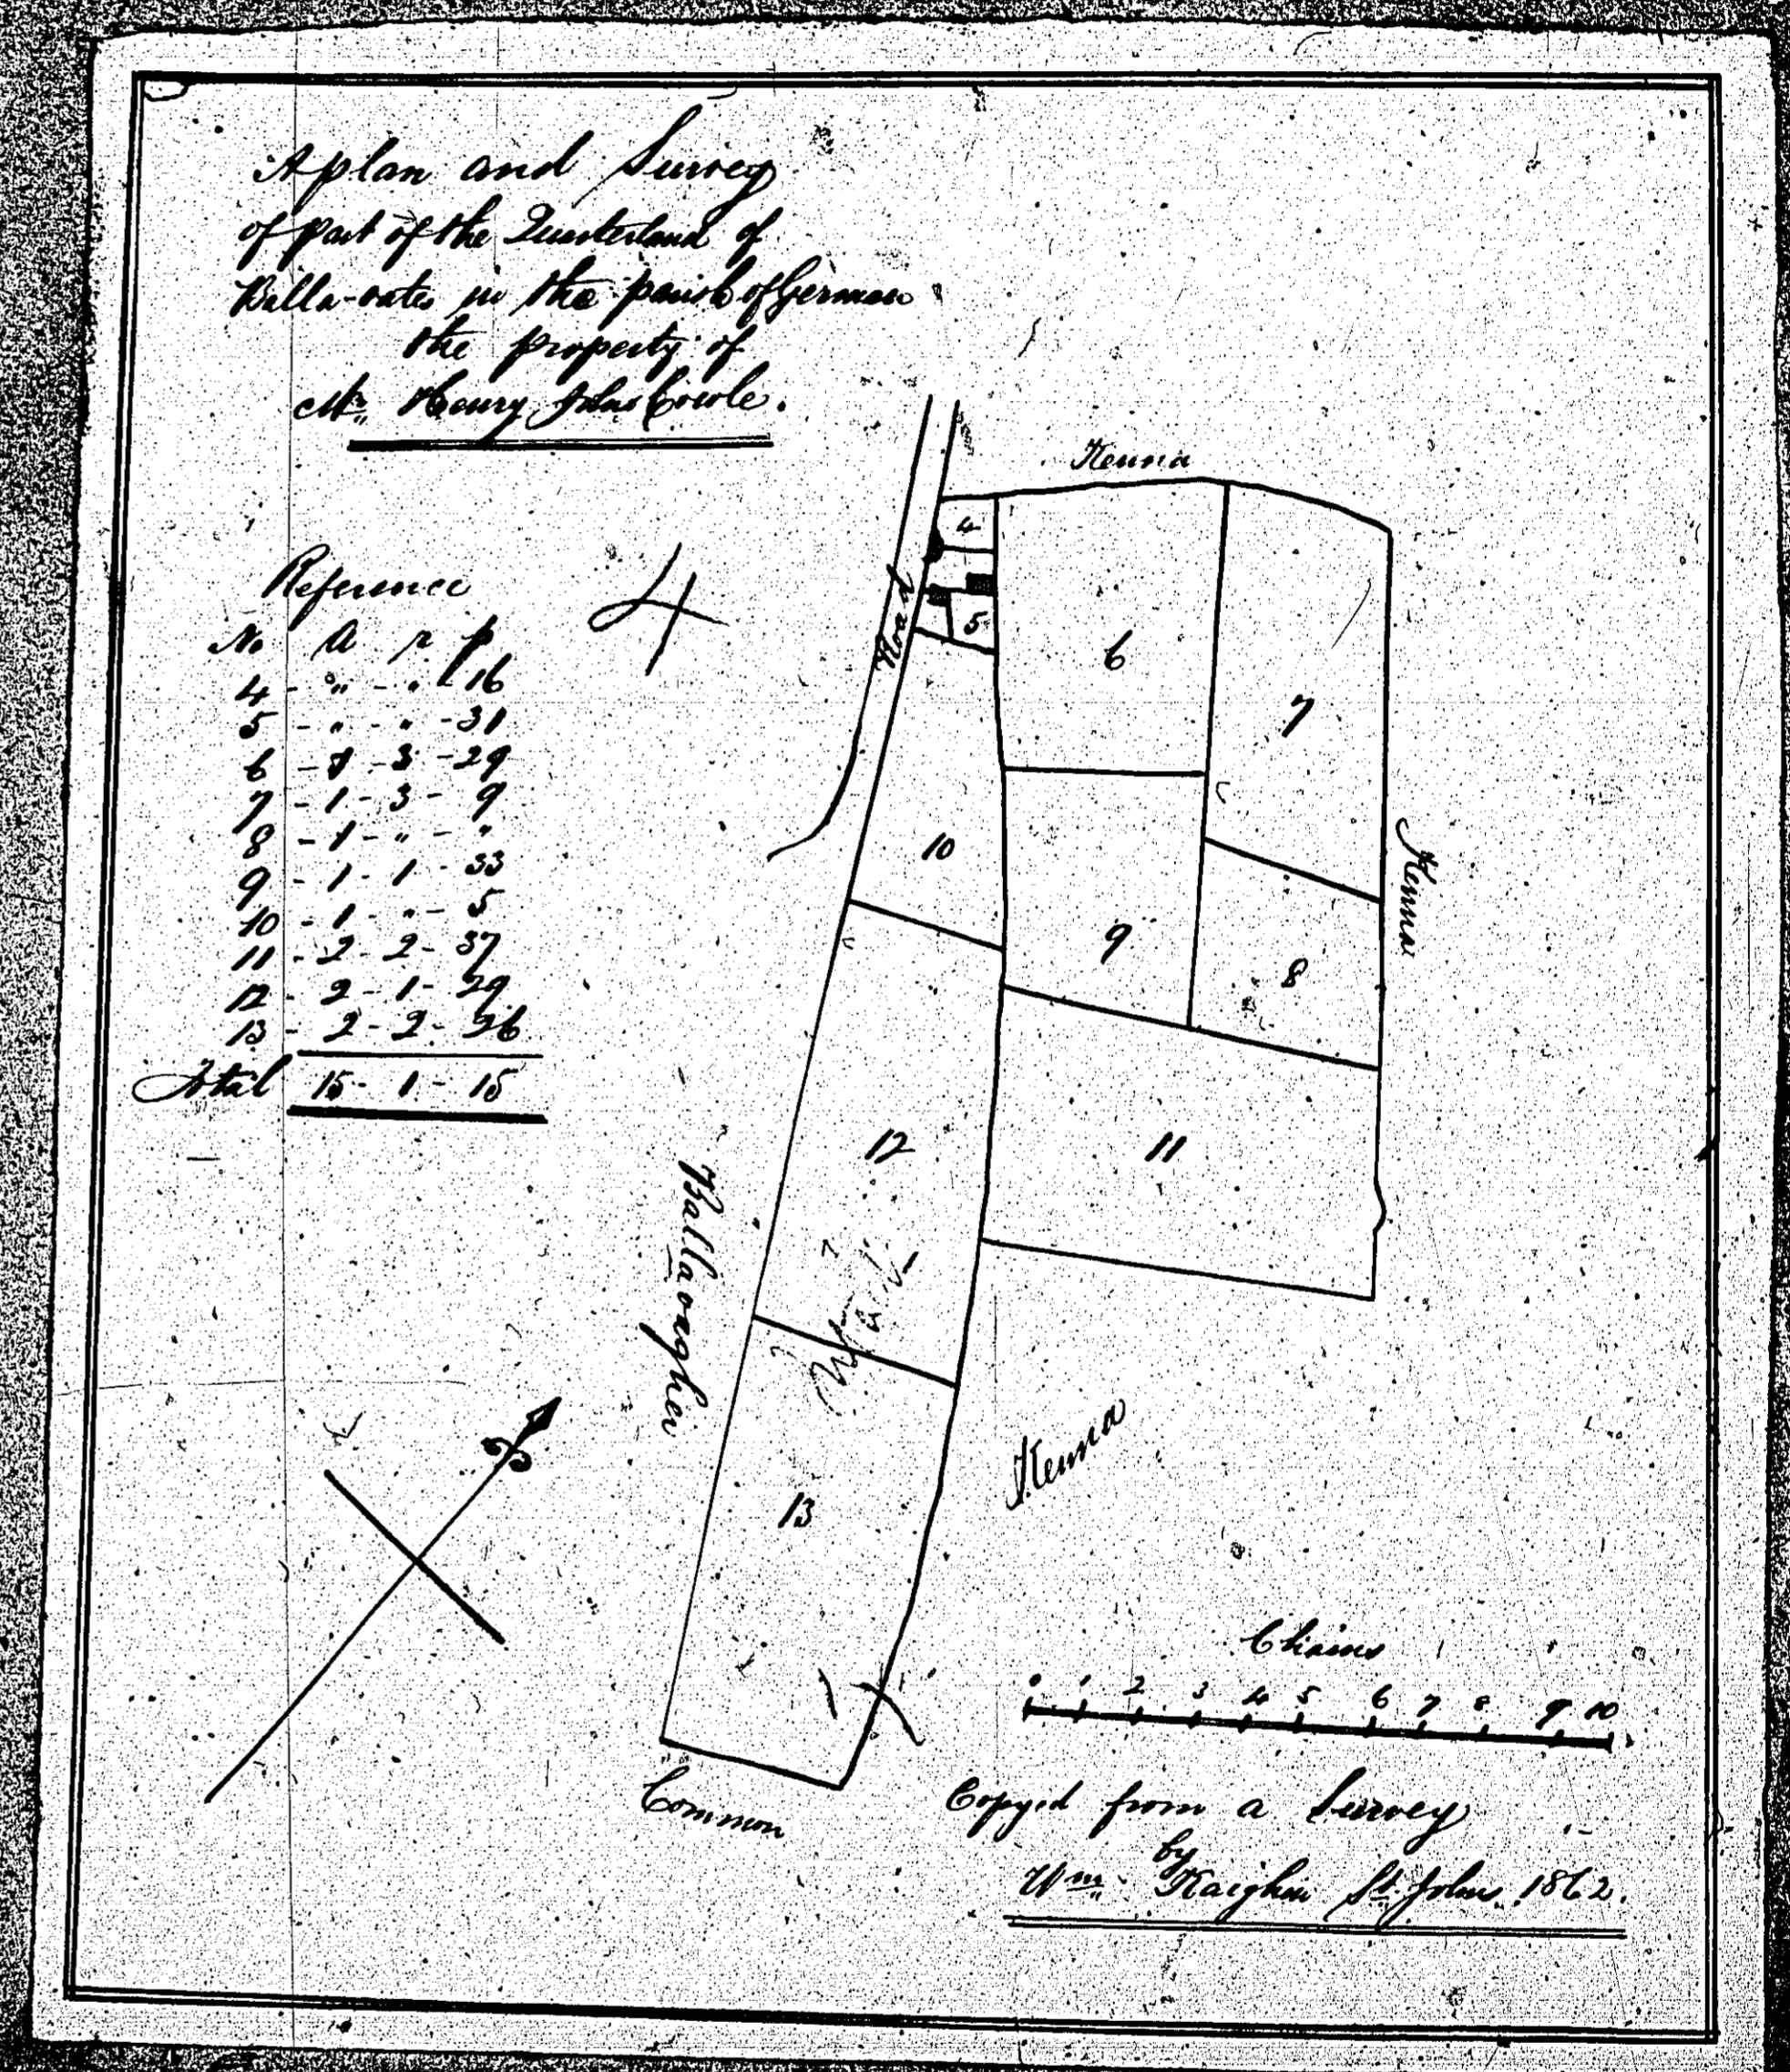 A plan and Survey
of part of the Quarterland of
Balla-oates in the parish of German
the property of
Mr. Henry John
Reference
No A r p
4 - 0 " - " - 16
5 - " - " - 31
6 - 1 - 3 - 29
7 - 1 - 3 - 9
8 - 1 - " - "
9 - 1 - 1 - 33
10 - 1 - " - 5
11 - 2 - 2 - 37
12 - 2 - 1 - 29
13 - 2 - 2 - 26
Total 15 - 1 - 15
4
Kenna
Road
4
5
6
7
Kenna
10
9
8
12
11
Ballavaghei
13
Kenna
Common
Chains
0 1 2 3 4 5 6 7 8 9 10
Copyed from a Survey
by
Wm. Kaighin St. Johns 1862.